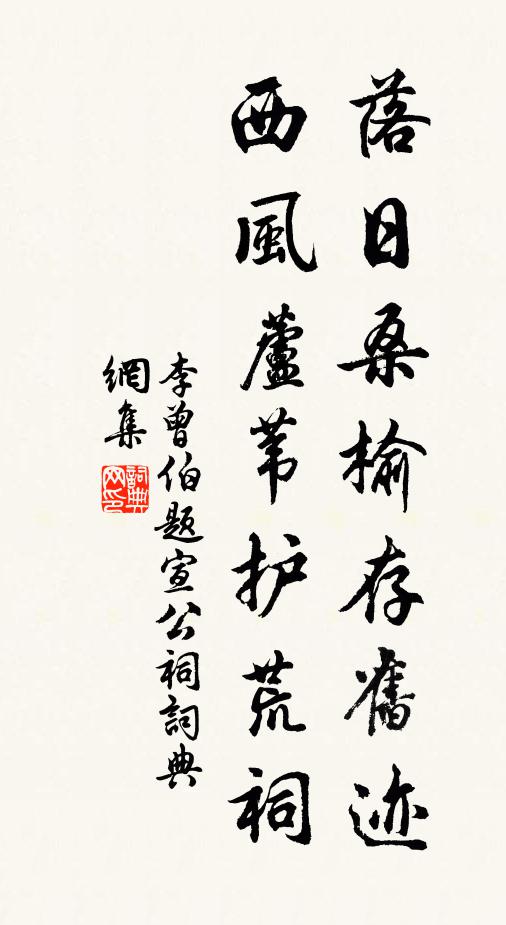 落日桑榆存舊迹
西風蘆苇护荒祠
李曾伯题宣公祠詞典
網集
詞典網印